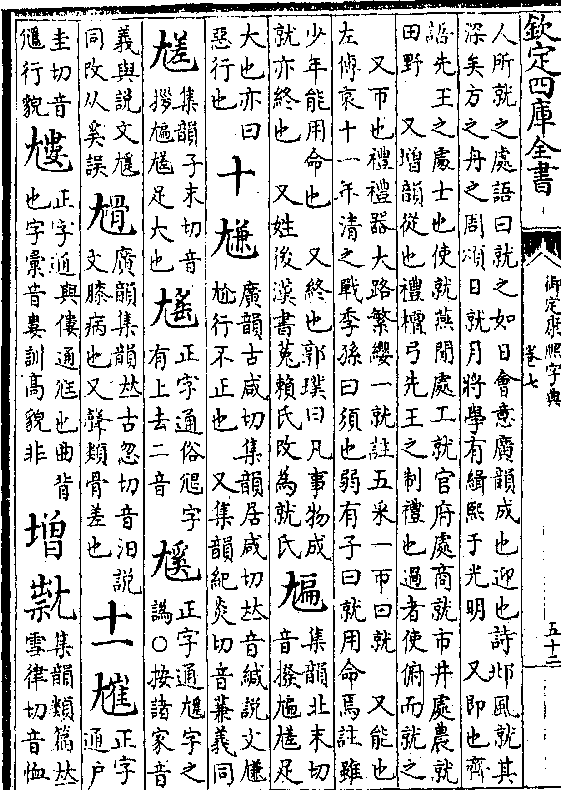 欽定四庫全書
御定康熙字典
卷七
五十二
人所就之處語曰就之如日會意廣韻成也迎也詩邶風就其
深矣方之舟之周頌日就月將學有緝熙于光明 又即也齊
語先王之處士也使就燕閒處工就官府處商就市井處農就
田野 又增韻從也禮檀弓先王之制禮也過者使俯而就之
又帀也禮禮器大路繁纓一就註五采一帀曰就 又能也
左傳哀十一年清之戰季孫曰須也弱有子曰就用命焉註雖
少年能用命也 又終也郭璞曰凡事物成
就亦終也 又姓後漢書菟賴氏改為就氏
集韻北末切
音撥 足
大也亦曰
惡行也
十
尲
廣韻古咸切集韻居咸切𠀤音緘說文尲
尬行不正也 又集韻紀炎切音蒹義同
集韻子末切音
拶 足大也
正字通俗 字
有上去二音
正字通尲字之
譌○按諸家音
義與說文尲
同改从奚誤
尳
廣韻集韻𠀤古忽切音汨說
文膝病也又聲類骨差也
十一
正字
通户
圭切音
行貌
正字通與僂通尪也曲背
也字彙音婁訓高貌非
增
集韻類篇𠀤
雪律切音恤